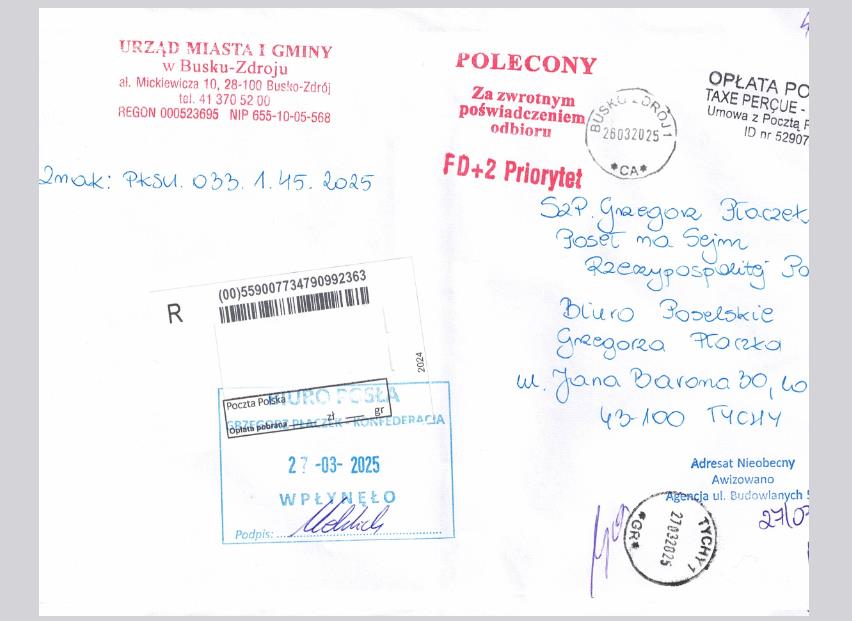 URZĄD MIASTA I GMINY
w Busku-Zdroju
al. Mickiewicza 10, 28-100 Busko-Zdrój
tel. 41 370 52 00
REGON 000523695 NIP 655-10-05-568
POLECONY
Za zwrotnym
poświadczeniem
odbioru
FD+2 Priorytet
BUSKO ZDRÓJ 1
26032025
*CA*
OPŁATA PO
TAXE PERÇUE -
Umowa z Pocztą P
ID nr 52907
Znak: PKSU. 033. 1. 45. 2025
SzP. Grzegorz Płaczek
Poseł na Sejm
Rzeczypospolitej Po
Biuro Poselskie
Grzegorza Płaczka
ul. Jana Barona 30, lo
43-100 TYCHY
R
(00)559007734790992363
2024
Poczta Polska
Opłata pobrana zł gr
BIURO POSŁA
GRZEGORZ PŁACZEK - KONFEDERACJA
27-03-2025
WPŁYNĘŁO
Podpis:
Adresat Nieobecny
Awizowano
Agencja ul. Budowlanych 5
27/03
TYCHY 1
27032025
*GR*